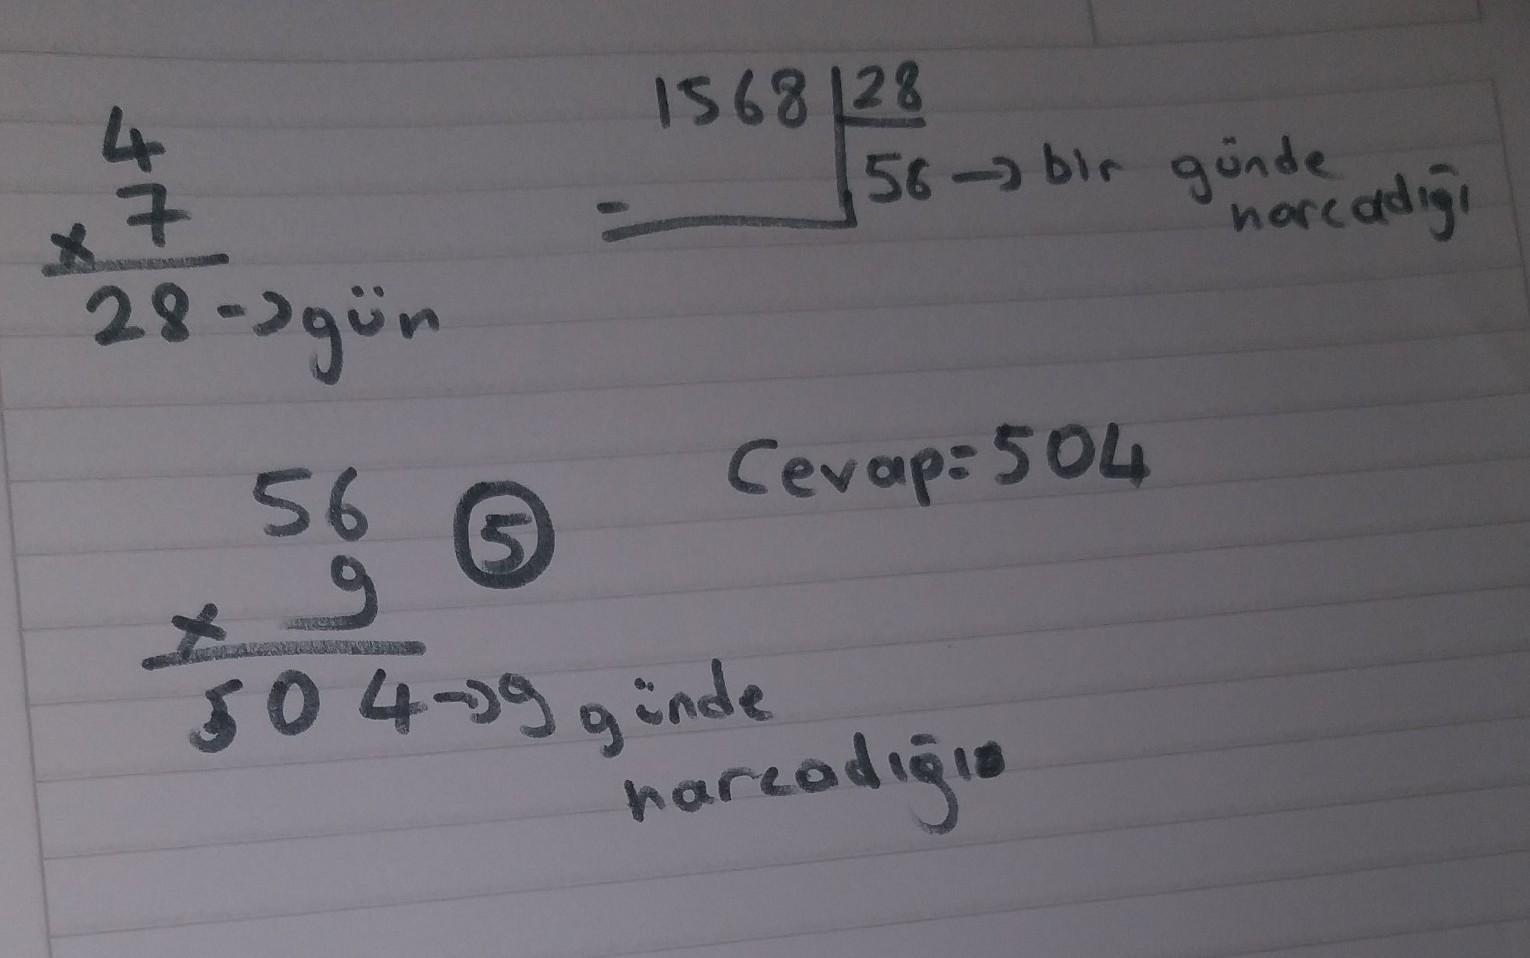 4
x 7
28 → gün
1568 | 28
56 → bir günde
harcadığı
-
56
x 9
5
504 → 9 günde
harcadığı
Cevap = 504